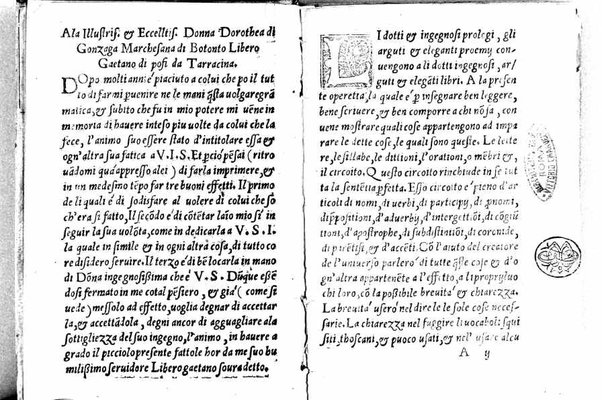 Ala Illustriſs. & Eccellſiſs. Donna Dorothea di
Gonzaga Marchesana di Botonto Libero
Gaetano di pofi da Tarracina.
DOpo molti anni é piaciuto a colui che po il tut
to di farmi puenire ne le mani q̃ſta uolgare grã
matica, & ſubito che fu in mio potere mi uẽne in
memoria di hauere inteſo piu uolte da colui che la
fece, l'animo ſuo eſſere ſtato d'intitolare eſſa &
ogn'altra ſua fatica a V. I. S. Et pció pẽſai (ritro
uãdomi qua appreſſo a lei) di farla imprimere, &
in un medeſimo tẽpo far tre buoni effetti. Il primo
de li quali é di ſodiſfare al uolere di colui che ſo
ch'era ſi fatto, Il ſecõdo é di cõtẽtar l'aío mio ſi' in
ſeguir la ſua uolõta, come in dedicarla a V. S. I.
la quale in ſimile & in ogni altra coſa, di tutto co
re diſidero ſeruire. Il terzo é di bẽ locarla in mano
di Dõna ingegnoſiſſima che é V. S. Dũque eſſẽ
doſi fermato in me cotal pẽſiero, & giá (come ſi
uede) meſſolo ad effetto, uoglia degnar di accettar
la, & accettãdola, degni ancor di agguagliare ala
ſottigliezza del ſuo ingegno, l'animo, in hauere a
grado il picciolo preſente fattole hor da me ſuo hu
miliſſimo ſeruidore Libero gaetano ſouradetto.
LI dotti & ingegnoſi prolegi, gli
arguti & eleganti proemy con-
uengono a li dotti ingegnoſi, ar-
guti & elegãti libri. A la preſen
te operetta, la quale é ꝑ inſegnare ben leggere,
bene ſcriuere, & ben comporre a chi nõ ſa, con
uene moſtrare quali coſe appartengono ad impa
rare le dette coſe, le quali ſono queſte. Le lette
re, le ſillabe, le dittioni, l'orationi, o mẽbri &, il
il circoito. Queſto circoito rinchiude in ſe tut
ta la ſentẽtia pfetta. Eſſo circoito é pieno d'ar
ticoli di nomi, di uerbi, di participy, di ꝓnomi,
di ppoſitioni, d'aduerby, d'intergettiõi, di cõgiũ
tiõi, d'apoſtrophe, di ſubdiſtintiõi, di coronide,
di parẽteſi, & d'accẽti. Cõ l'aiuto del creatore
de l'uniuerſo parleró di tutte q̃lle coſe & d'o
gn'altra appartenẽte a l'effetto, a li ꝓprij luo
chi loro, có la poſſibile breuita' & chiarezza.
La breuitá uſeró nel dire le ſole coſe neceſ-
ſarie. La chiarezza nel fuggire li uocaboli ſqui
ſiti, thoſcani, & poco uſati, & nel' uſare alcu
A y